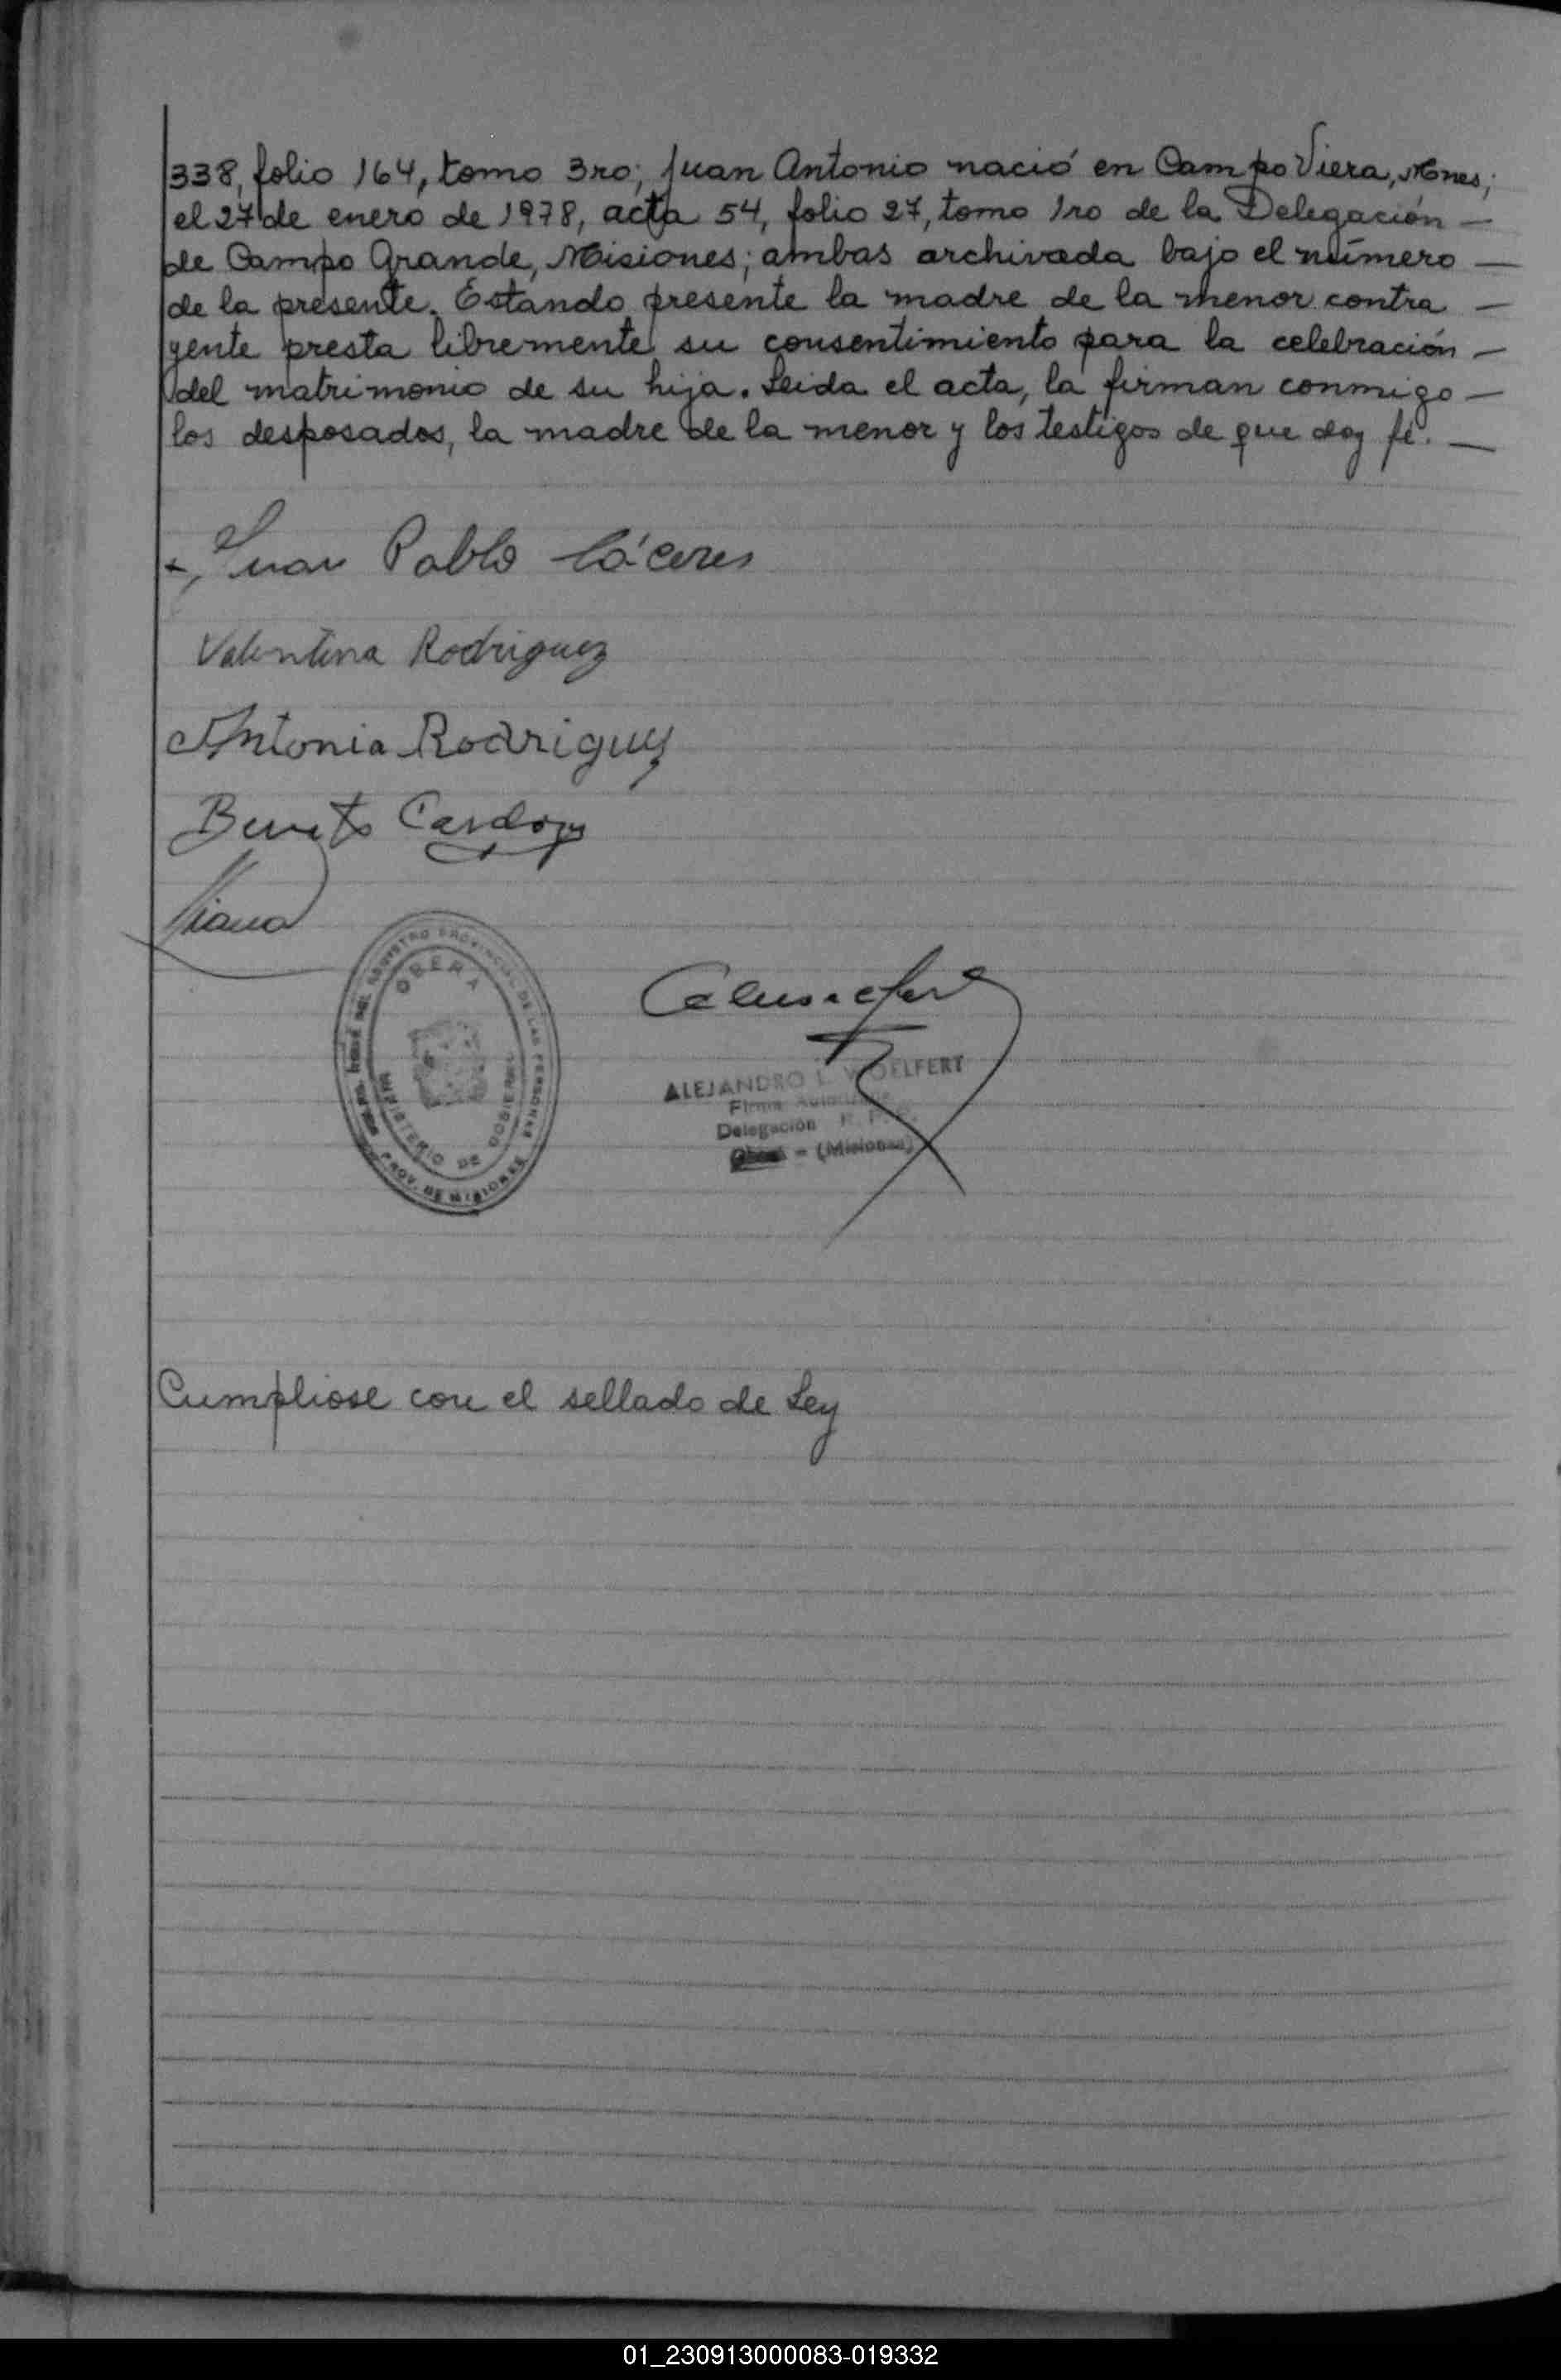 338, folio 164, tomo 3ro; Juan Antonio nació en Campo Viera, Mnes;
el 27 de enero de 1978, acta 54, folio 27, tomo 1ro de la Delegación —
de Campo Grande, Misiones; ambas archivada bajo el número —
de la presente. Estando presente la madre de la menor contra —
yente presta libremente su consentimiento para la celebración —
del matrimonio de su hija. Leida el acta, la firman conmigo —
los desposados, la madre de la menor y los testigos de que doy fé. —
Juan Pablo Cáceres
Valentina Rodriguez
Antonia Rodriguez
Benito Cardozo
REGISTRO PROVINCIAL DE LAS PERSONAS
OBERA
MINISTERIO DE GOBIERNO
PROV. DE MISIONES
ALEJANDRO L. WOELFERT
Firma Autorizada
Delegación R. P. P.
Oberá - (Misiones)
Cumpliose con el sellado de Ley
01_230913000083-019332